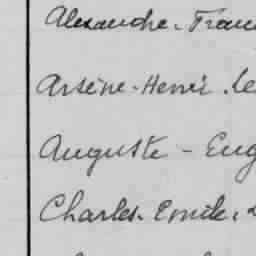 Alexandre-Fran
Arsène-Henri, le
Auguste - Eug
Charles-Emile, d